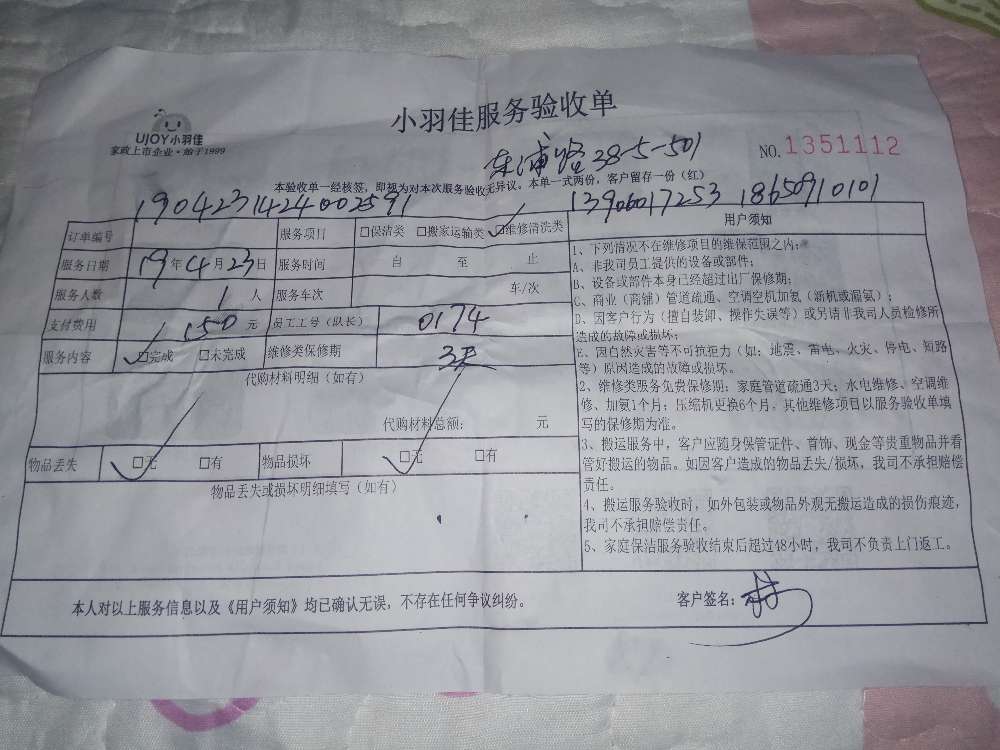 小羽佳服务验收单
UJOY小羽佳
家政上市企业·始于1999
东浦路38-5-501
NO.1351112
本验收单一经核签，即视为对本次服务验收无异议。本单一式两份，客户留存一份（红）
1904231424002591 13906017253 18650910101
订单编号 服务项目 □保洁类 □搬家运输类 ☑维修清洗类
服务日期 19年4月23日 服务时间 自 至 止
服务人数 1 人 服务车次 车/次
支付费用 150 元 员工工号（队长） 0174
服务内容 ☑完成 □未完成 维修类保修期 3天
代购材料明细（如有）
代购材料总额： 元
物品丢失 ☑无 □有 物品损坏 ☑无 □有
物品丢失或损坏明细填写（如有）
用户须知
1、下列情况不在维修项目的维保范围之内：
A、非我司员工提供的设备或部件；
B、设备或部件本身已经超过出厂保修期；
C、商业（商铺）管道疏通、空调空机加氨（新机或漏氨）；
D、因客户行为（擅自装卸、操作失误等）或另请非我司人员检修所
造成的故障或损坏；
E、因自然灾害等不可抗拒力（如：地震、雷电、火灾、停电、短路
等）原因造成的故障或损坏。
2、维修类服务免费保修期：家庭管道疏通3天；水电维修、空调维
修、加氨1个月；压缩机更换6个月，其他维修项目以服务验收单填
写的保修期为准。
3、搬运服务中，客户应随身保管证件、首饰、现金等贵重物品并看
管好搬运的物品。如因客户造成的物品丢失/损坏，我司不承担赔偿
责任。
4、搬运服务验收时，如外包装或物品外观无搬运造成的损伤痕迹，
我司不承担赔偿责任。
5、家庭保洁服务验收结束后超过48小时，我司不负责上门返工。
本人对以上服务信息以及《用户须知》均已确认无误，不存在任何争议纠纷。 客户签名：